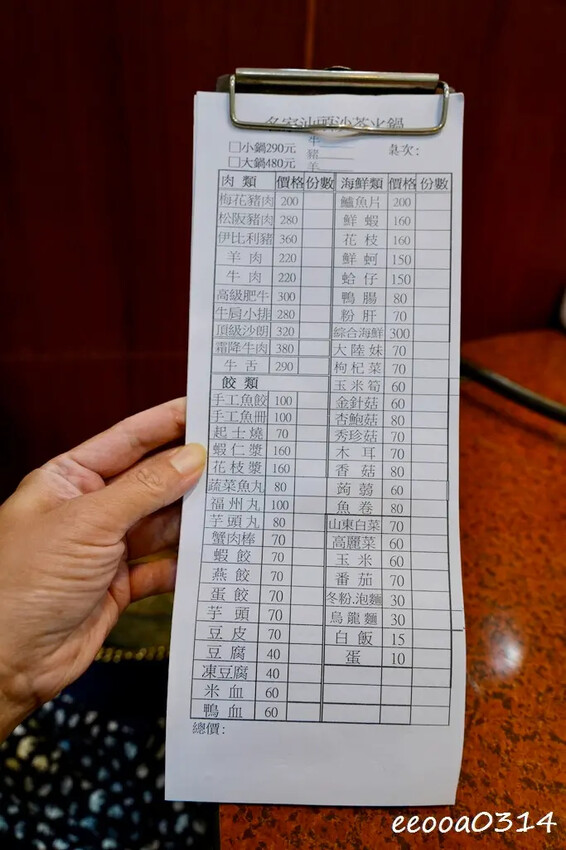 名家汕頭沙茶火鍋
□小鍋290元 牛 桌次:
□大鍋480元 豬
羊
肉類 價格 份數 海鮮類 價格 份數
梅花豬肉 200 鱸魚片 200
松阪豬肉 280 鮮蝦 160
伊比利豬 360 花枝 160
羊肉 220 鮮蚵 150
牛肉 220 蛤仔 150
高級肥牛 300 鴨腸 80
牛肩小排 280 粉肝 70
頂級沙朗 320 綜合海鮮 300
霜降牛肉 380 大陸妹 70
牛舌 290 枸杞菜 70
餃類 玉米筍 60
手工魚餃 100 金針菇 60
手工魚冊 100 杏鮑菇 80
起士燒 70 秀珍菇 70
蝦仁漿 160 木耳 70
花枝漿 160 香菇 80
蔬菜魚丸 80 蒟蒻 60
福州丸 100 魚卷 80
芋頭丸 80 山東白菜 70
蟹肉棒 70 高麗菜 60
蝦餃 70 玉米 60
燕餃 70 番茄 70
蛋餃 70 冬粉.泡麵 30
芋頭 70 烏龍麵 30
豆皮 70 白飯 15
豆腐 40 蛋 10
凍豆腐 40
米血 60
鴨血 60
總價:
eeooa0314